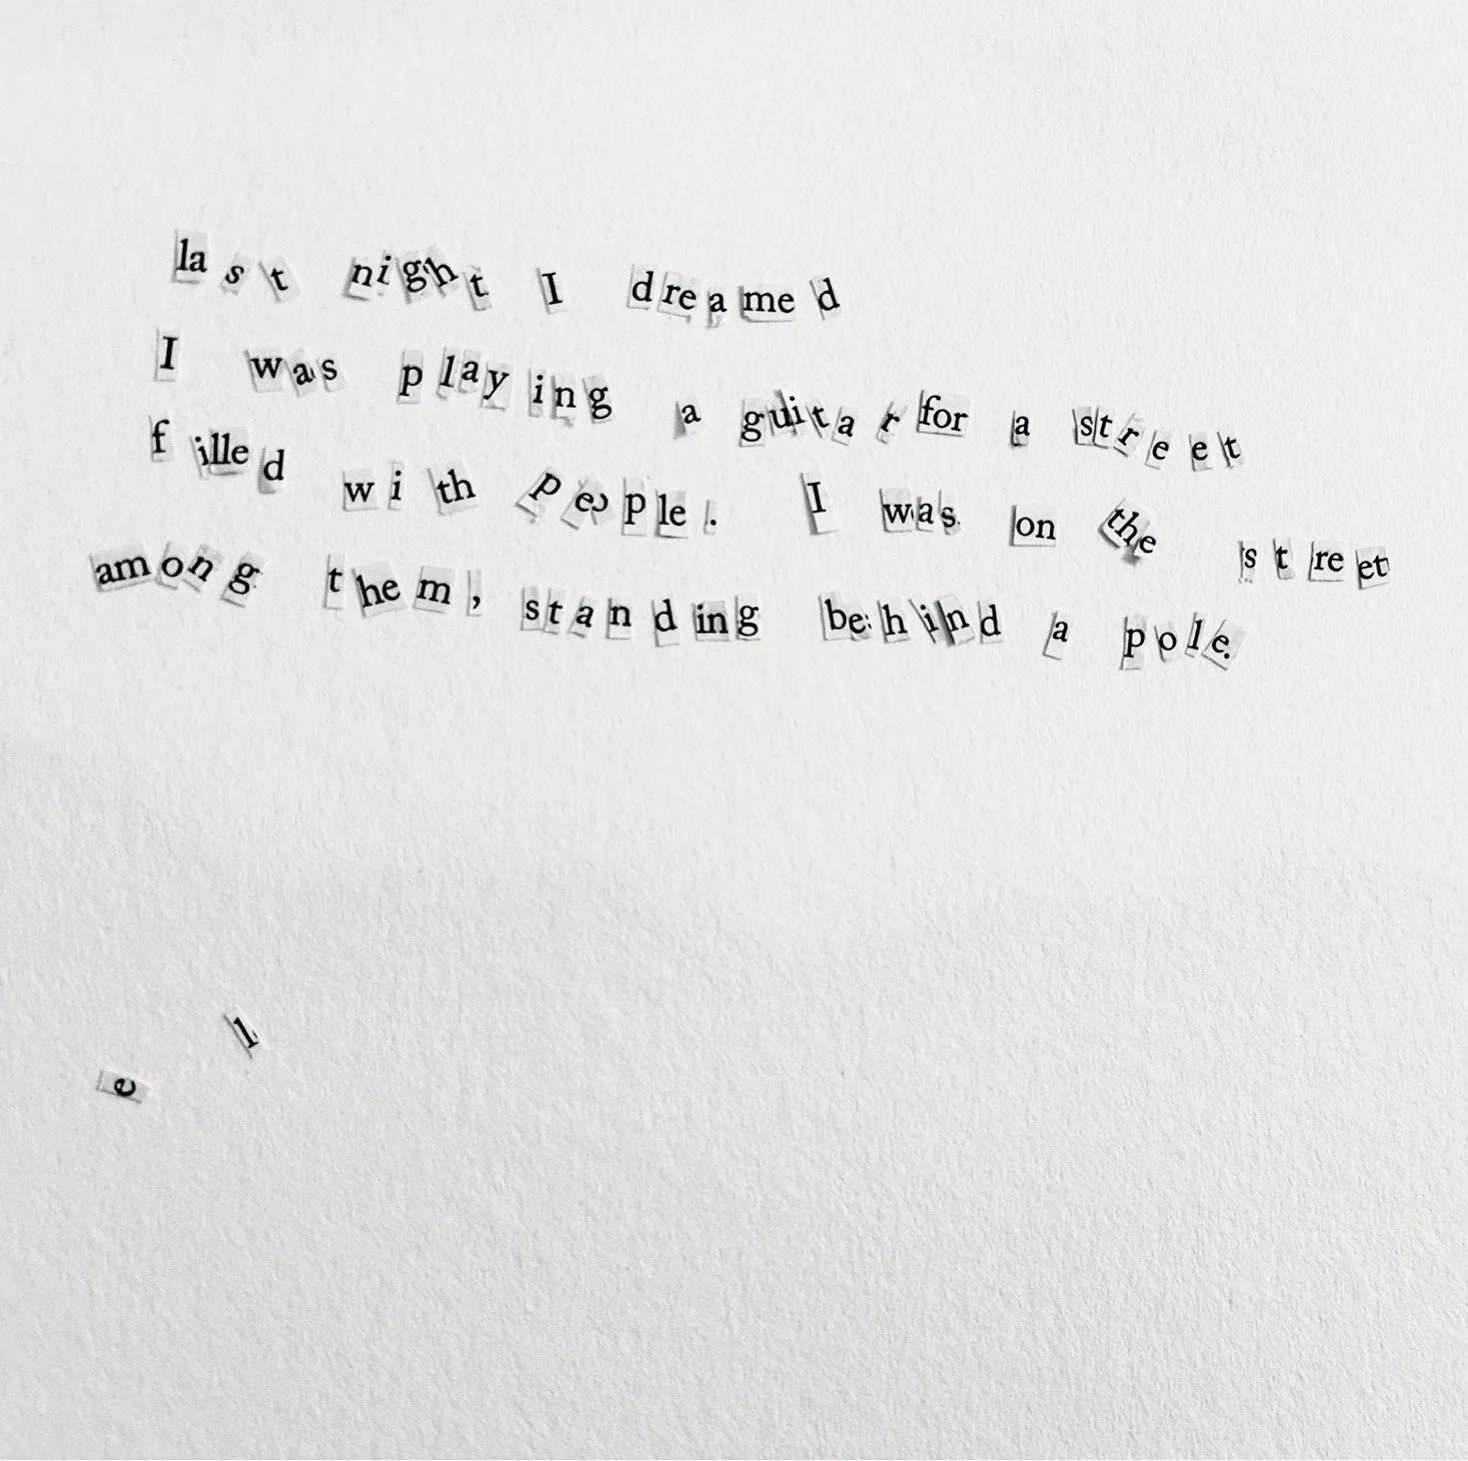 last night I dreamed
I was playing a guitar for a street
filled with people. I was on the street
among them, standing behind a pole.
l
e